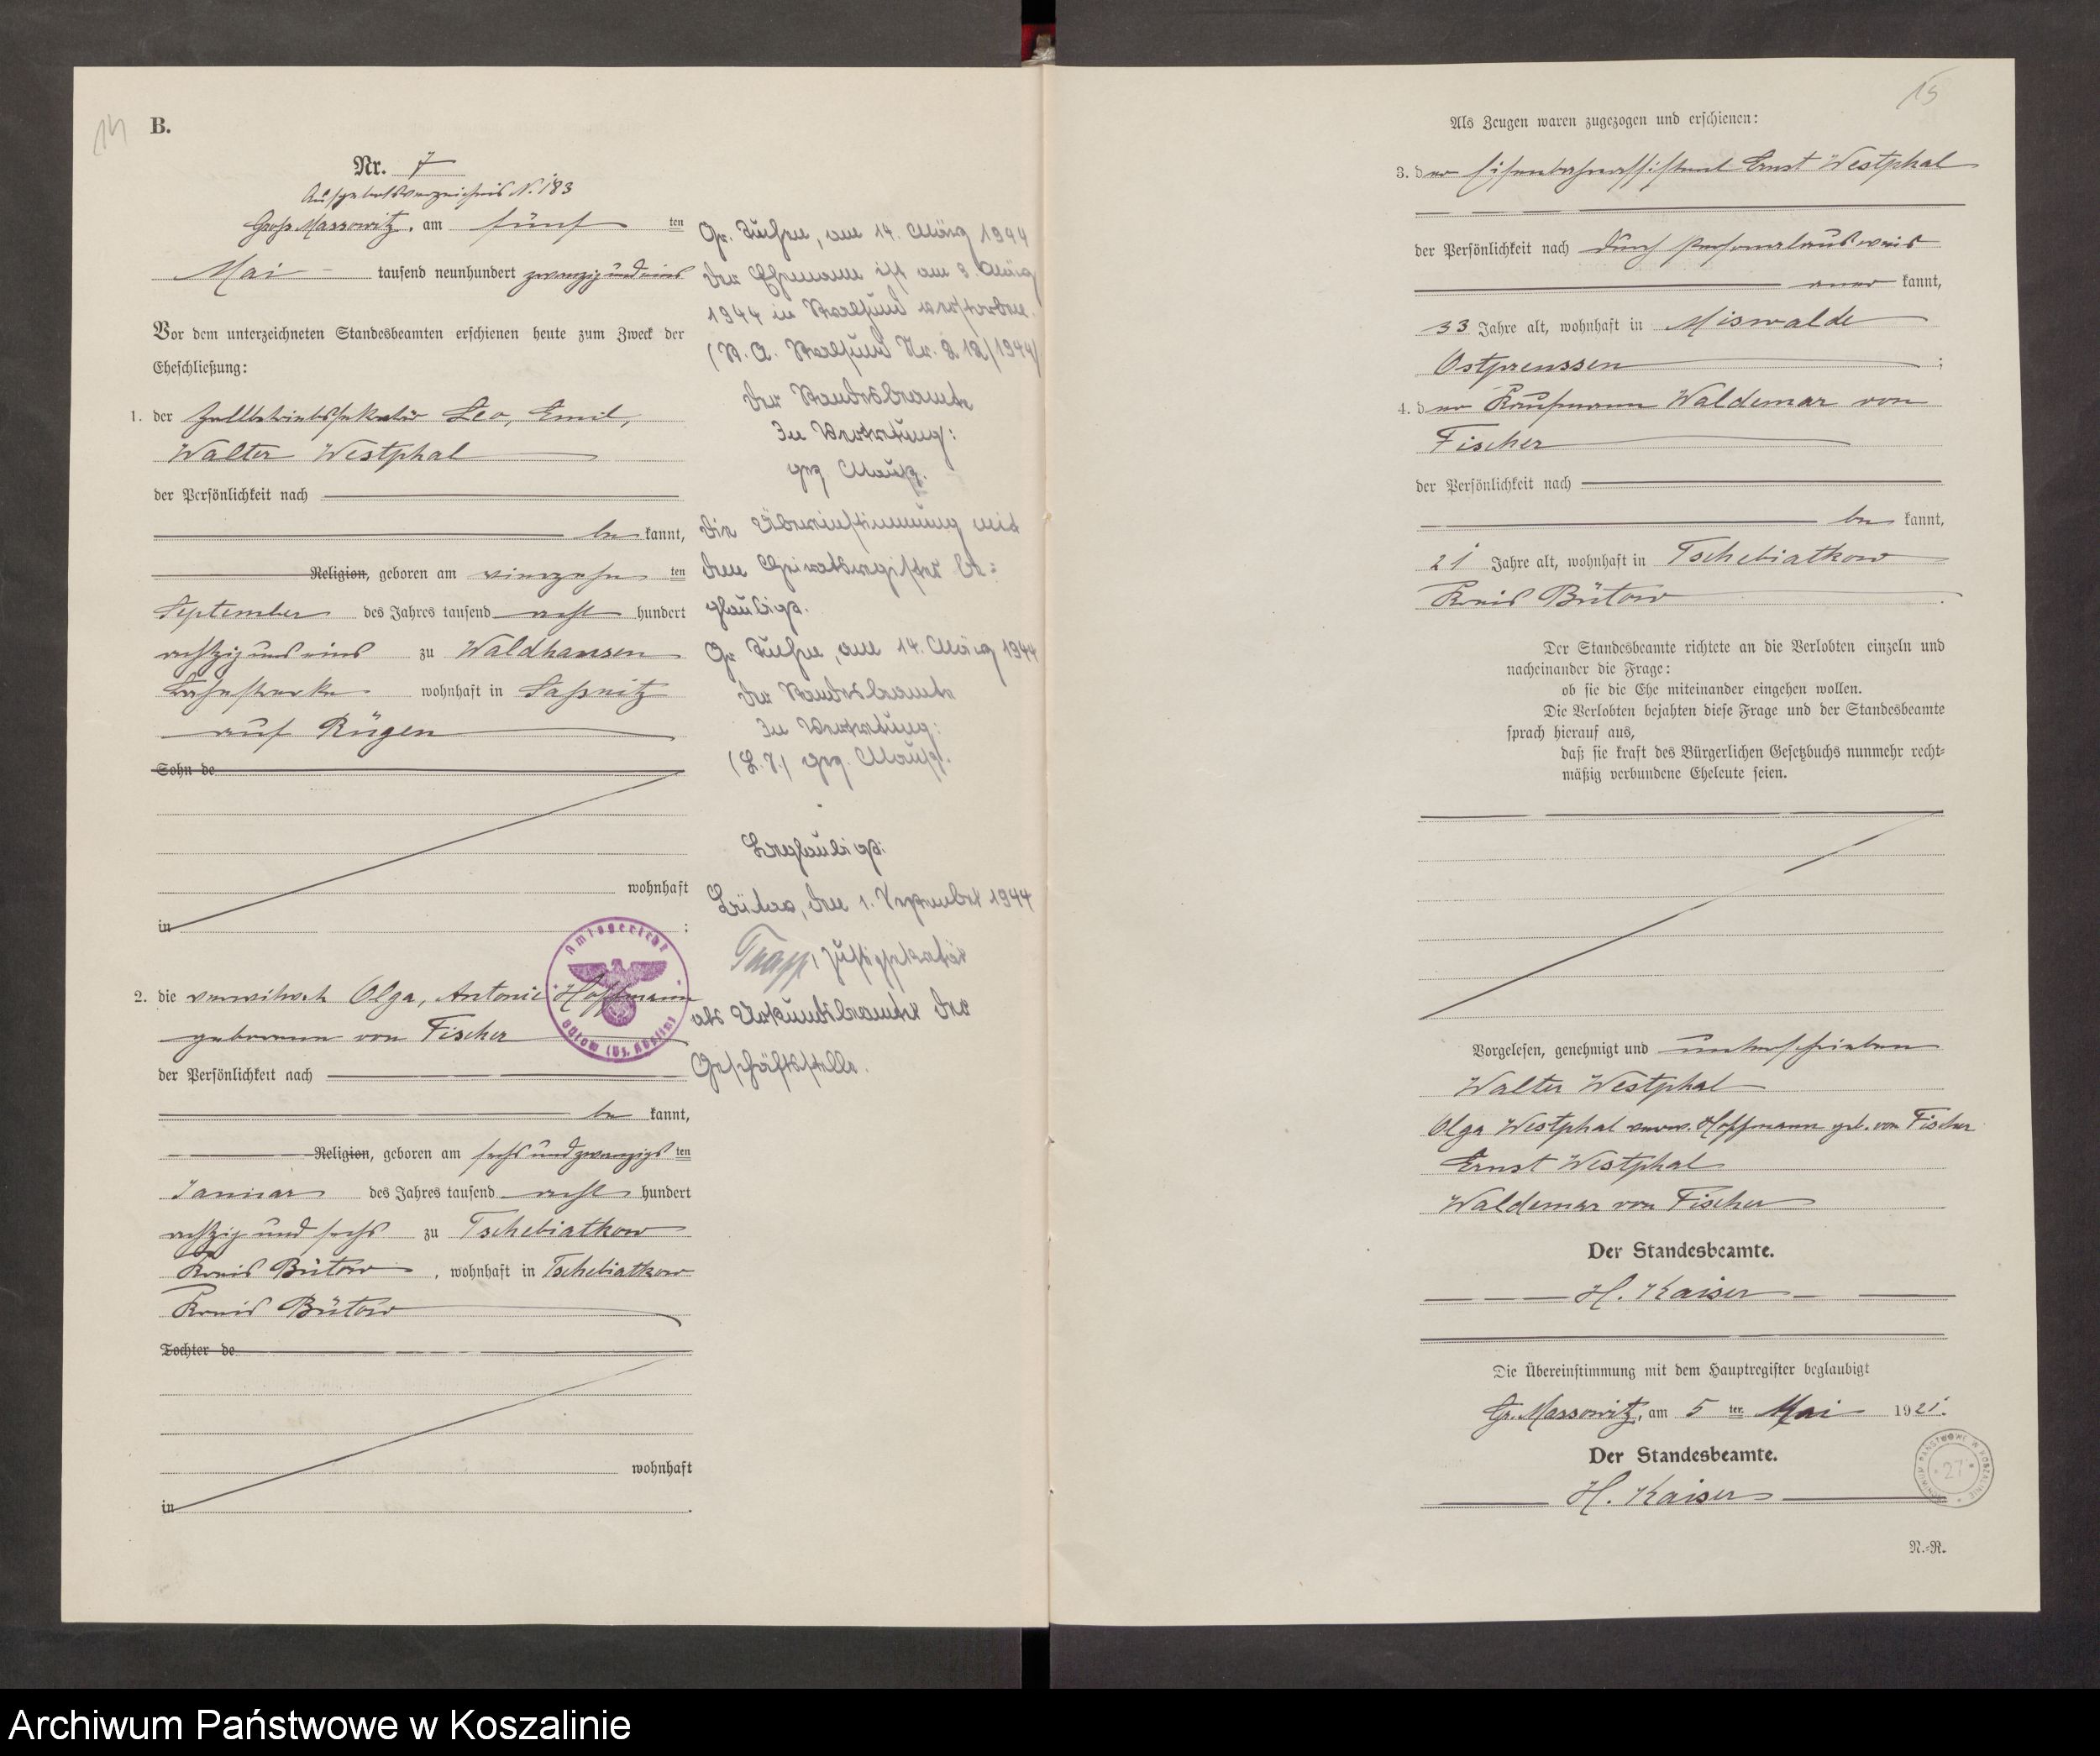 14
B.
Nr. 7
Aufgebotsverzeichnis N. 183
Gross Massowitz, am fünf ten
Mai tausend neunhundert zwanzig und eins
Vor dem unterzeichneten Standesbeamten erschienen heute zum Zweck der
Eheschließung:
1. der Zollbetriebssekretär Leo, Emil,
Walter Westphal
der Persönlichkeit nach
be kannt,
Religion, geboren am vierzehn ten
September des Jahres tausend acht hundert
achtzig und eins zu Waldhausen
wohnhaft in Saßnitz
auf Rügen
Sohn de
wohnhaft
in ;
2. die verwitwete Olga, Antonie Hoffmann
geborene von Fischer
der Persönlichkeit nach
be kannt,
Religion, geboren am sechs und zwanzigs ten
Januar des Jahres tausend acht hundert
achtzig und sechs zu Tschebiatkow
Kreis Bütow, wohnhaft in Tschebiatkow
Kreis Bütow
Tochter de
wohnhaft
in .
Gr. Tuchen, am 14. März 1944
Der Ehemann ist am 8. März
1944 in Stralsund verstorben.
(St. A. Stralsund Nr. 212/1944)
Der Standesbeamte
In Vertretung:
gez.
Die Übereinstimmung mit
dem Heiratsregister be=
glaubigt.
Gr Tuchen, am 14. März 1944
Der Standesbeamte
In Vertretung:
(L. S.) gez.
Beglaubigt:
Bütow, den 1. September 1944
Justizsekretär
als Urkundsbeamter der
Geschäftsstelle.
Amtsgericht
Bütow (Bz. Köslin)
15
Als Zeugen waren zugezogen und erschienen:
3. der Eisenbahnassistent Ernst Westphal
der Persönlichkeit nach durch Personalausweis
aner kannt,
33 Jahre alt, wohnhaft in Miswalde
Ostpreussen ;
4. der Kaufmann Waldemar von
Fischer
der Persönlichkeit nach
be kannt,
21 Jahre alt, wohnhaft in Tschebiatkow
Kreis Bütow .
Der Standesbeamte richtete an die Verlobten einzeln und
nacheinander die Frage:
ob sie die Ehe miteinander eingehen wollen.
Die Verlobten bejahten diese Frage und der Standesbeamte
sprach hierauf aus,
daß sie kraft des Bürgerlichen Gesetzbuchs nunmehr recht=
mäßig verbundene Eheleute seien.
Vorgelesen, genehmigt und unterschrieben
Walter Westphal
Olga Westphal verw. Hoffmann geb. von Fischer
Ernst Westphal
Waldemar von Fischer
Der Standesbeamte.
H. Kaiser
Die Übereinstimmung mit dem Hauptregister beglaubigt
Gr. Massowitz, am 5 ten Mai 1921.
Der Standesbeamte.
H. Kaiser
ARCHIWUM PAŃSTWOWE W KOSZALINIE
27
N.=R.
Archiwum Państwowe w Koszalinie